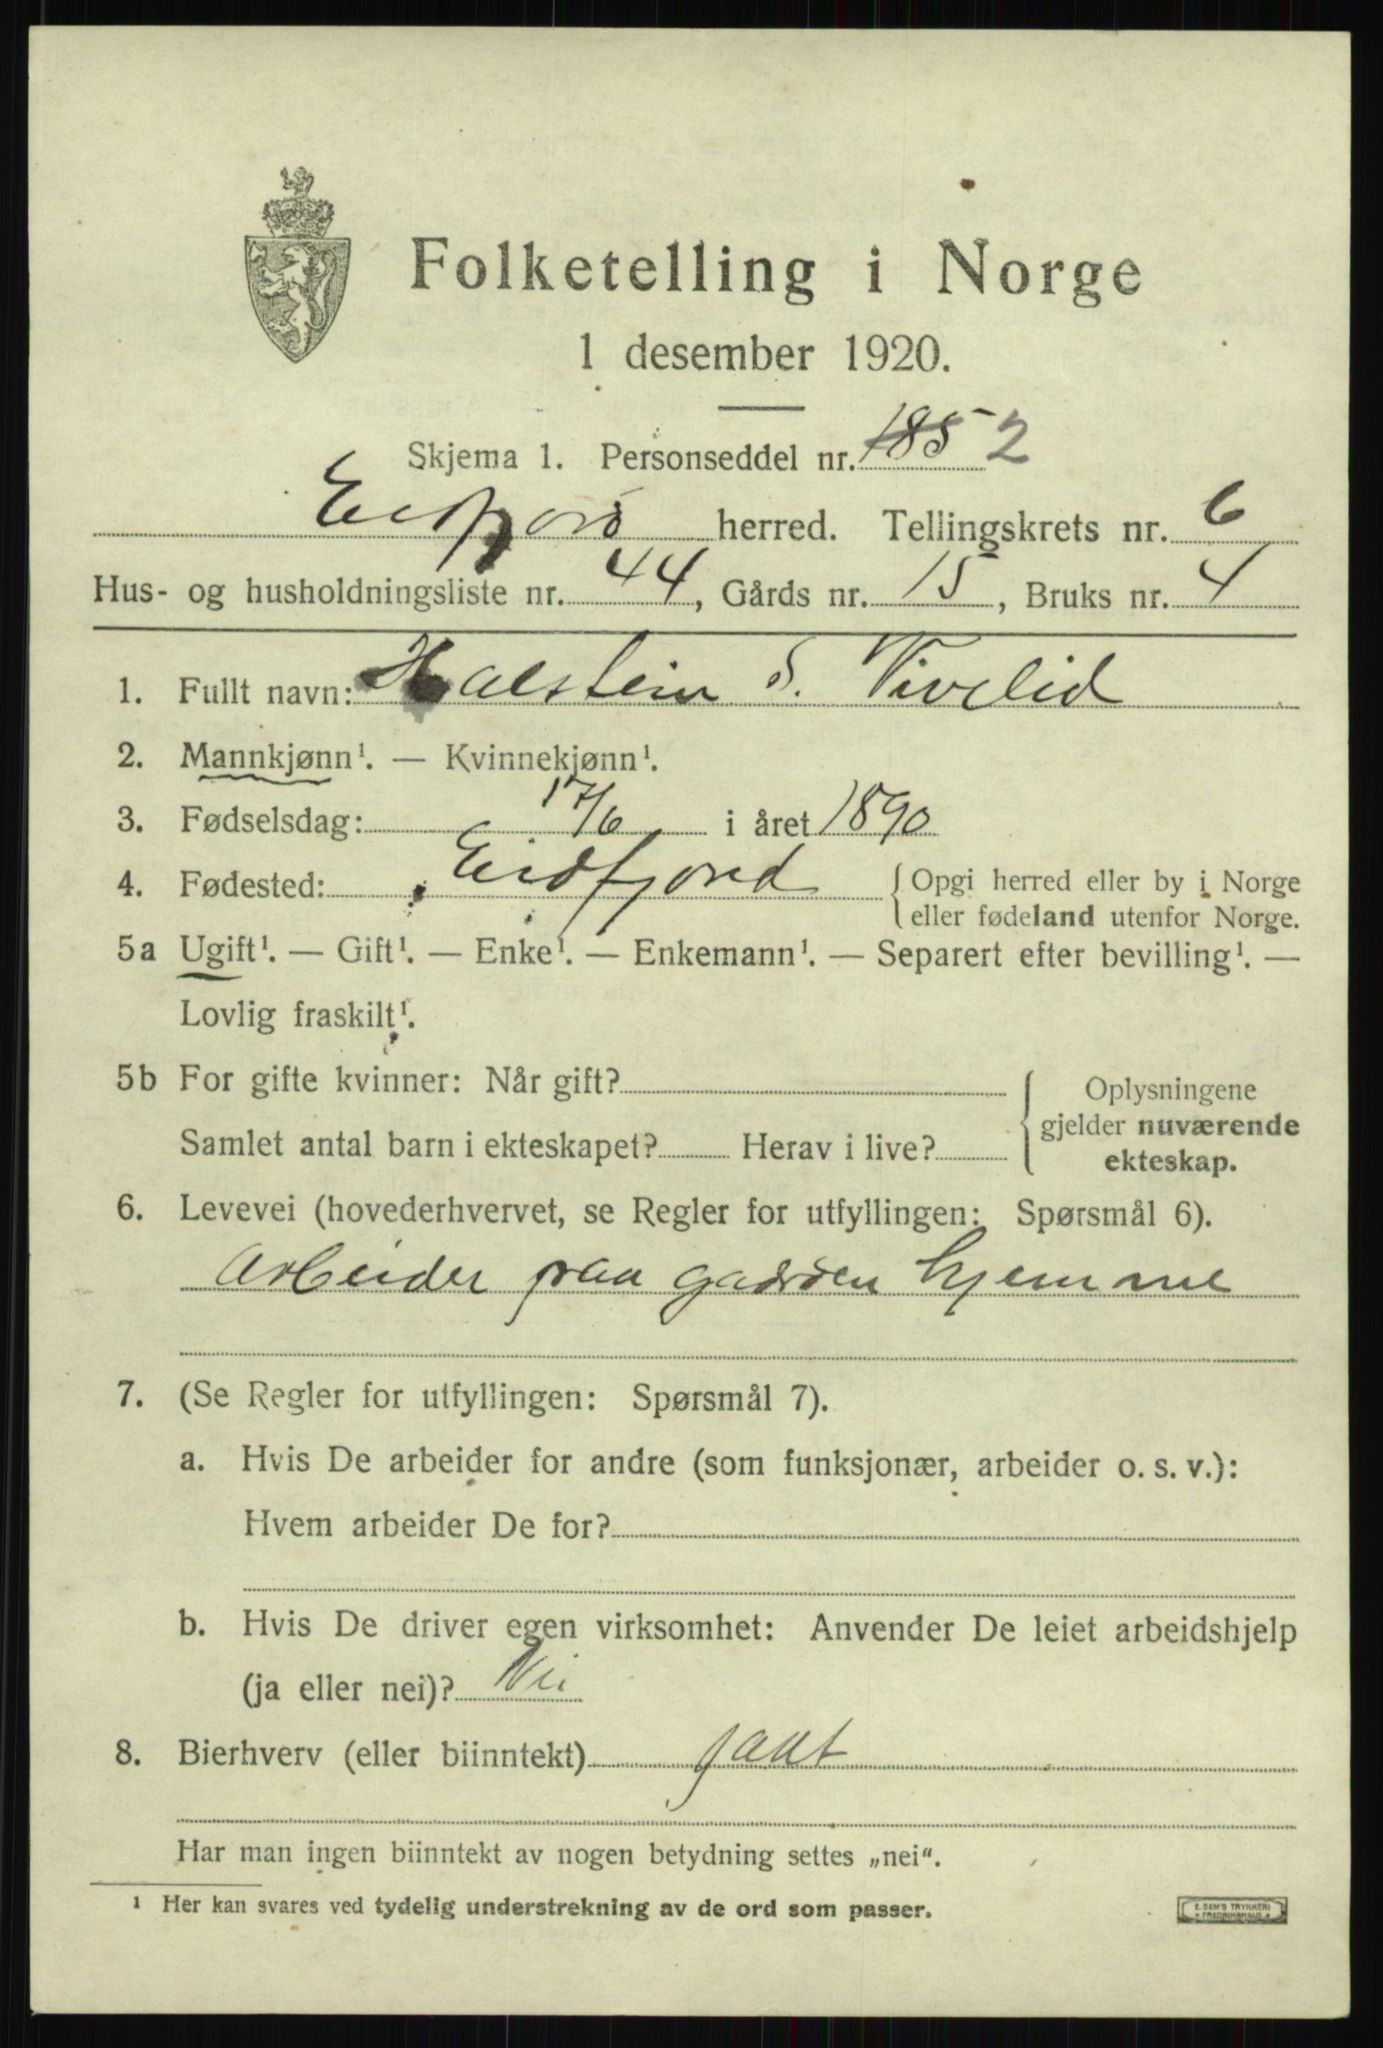 Folketelling i Norge
1 desember 1920.
Skjema 1. Personseddel nr. 185 2
Eidfjord herred. Tellingskrets nr. 6
Hus- og husholdningsliste nr. 44, Gårds nr. 15, Bruks nr. 4
1. Fullt navn: Halstein S. Vivelid
2. Mannkjønn¹. — Kvinnekjønn¹.
3. Fødselsdag: 17/6 i året 1890
4. Fødested: Eidfjord { Opgi herred eller by i Norge
eller fødeland utenfor Norge.
5a Ugift¹. — Gift¹. — Enke¹. — Enkemann¹. — Separert efter bevilling¹. —
Lovlig fraskilt¹.
5b For gifte kvinner: Når gift? { Oplysningene
gjelder nuværende
Samlet antal barn i ekteskapet? Herav i live? ekteskap.
6. Levevei (hovederhvervet, se Regler for utfyllingen: Spørsmål 6).
Arbeider paa gaarden hjemme
7. (Se Regler for utfyllingen: Spørsmål 7).
a. Hvis De arbeider for andre (som funksjonær, arbeider o. s. v.):
Hvem arbeider De for?
b. Hvis De driver egen virksomhet: Anvender De leiet arbeidshjelp
(ja eller nei)? Nei
8. Bierhverv (eller biinntekt)
Har man ingen biinntekt av nogen betydning settes „nei“.
¹ Her kan svares ved tydelig understrekning av de ord som passer.
E. SEM'S TRYKKERI
FREDRIKSHALD